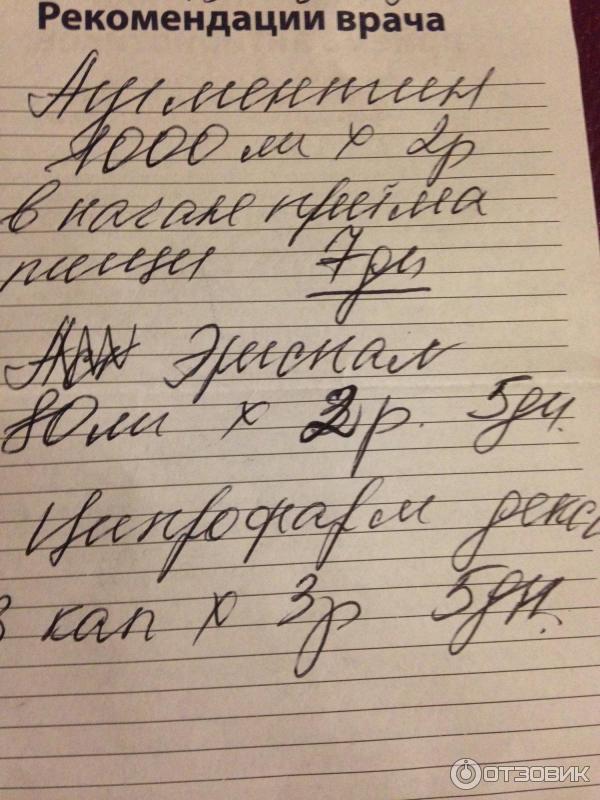 Рекомендации врача
Аугментин
1000 мг х 2р
в начале приёма
пищи 7дн
Эриспал
80мг х 2р. 5дн.
Ципрофарм декс
3 кап х 3р 5дн.
ОТЗОВИК